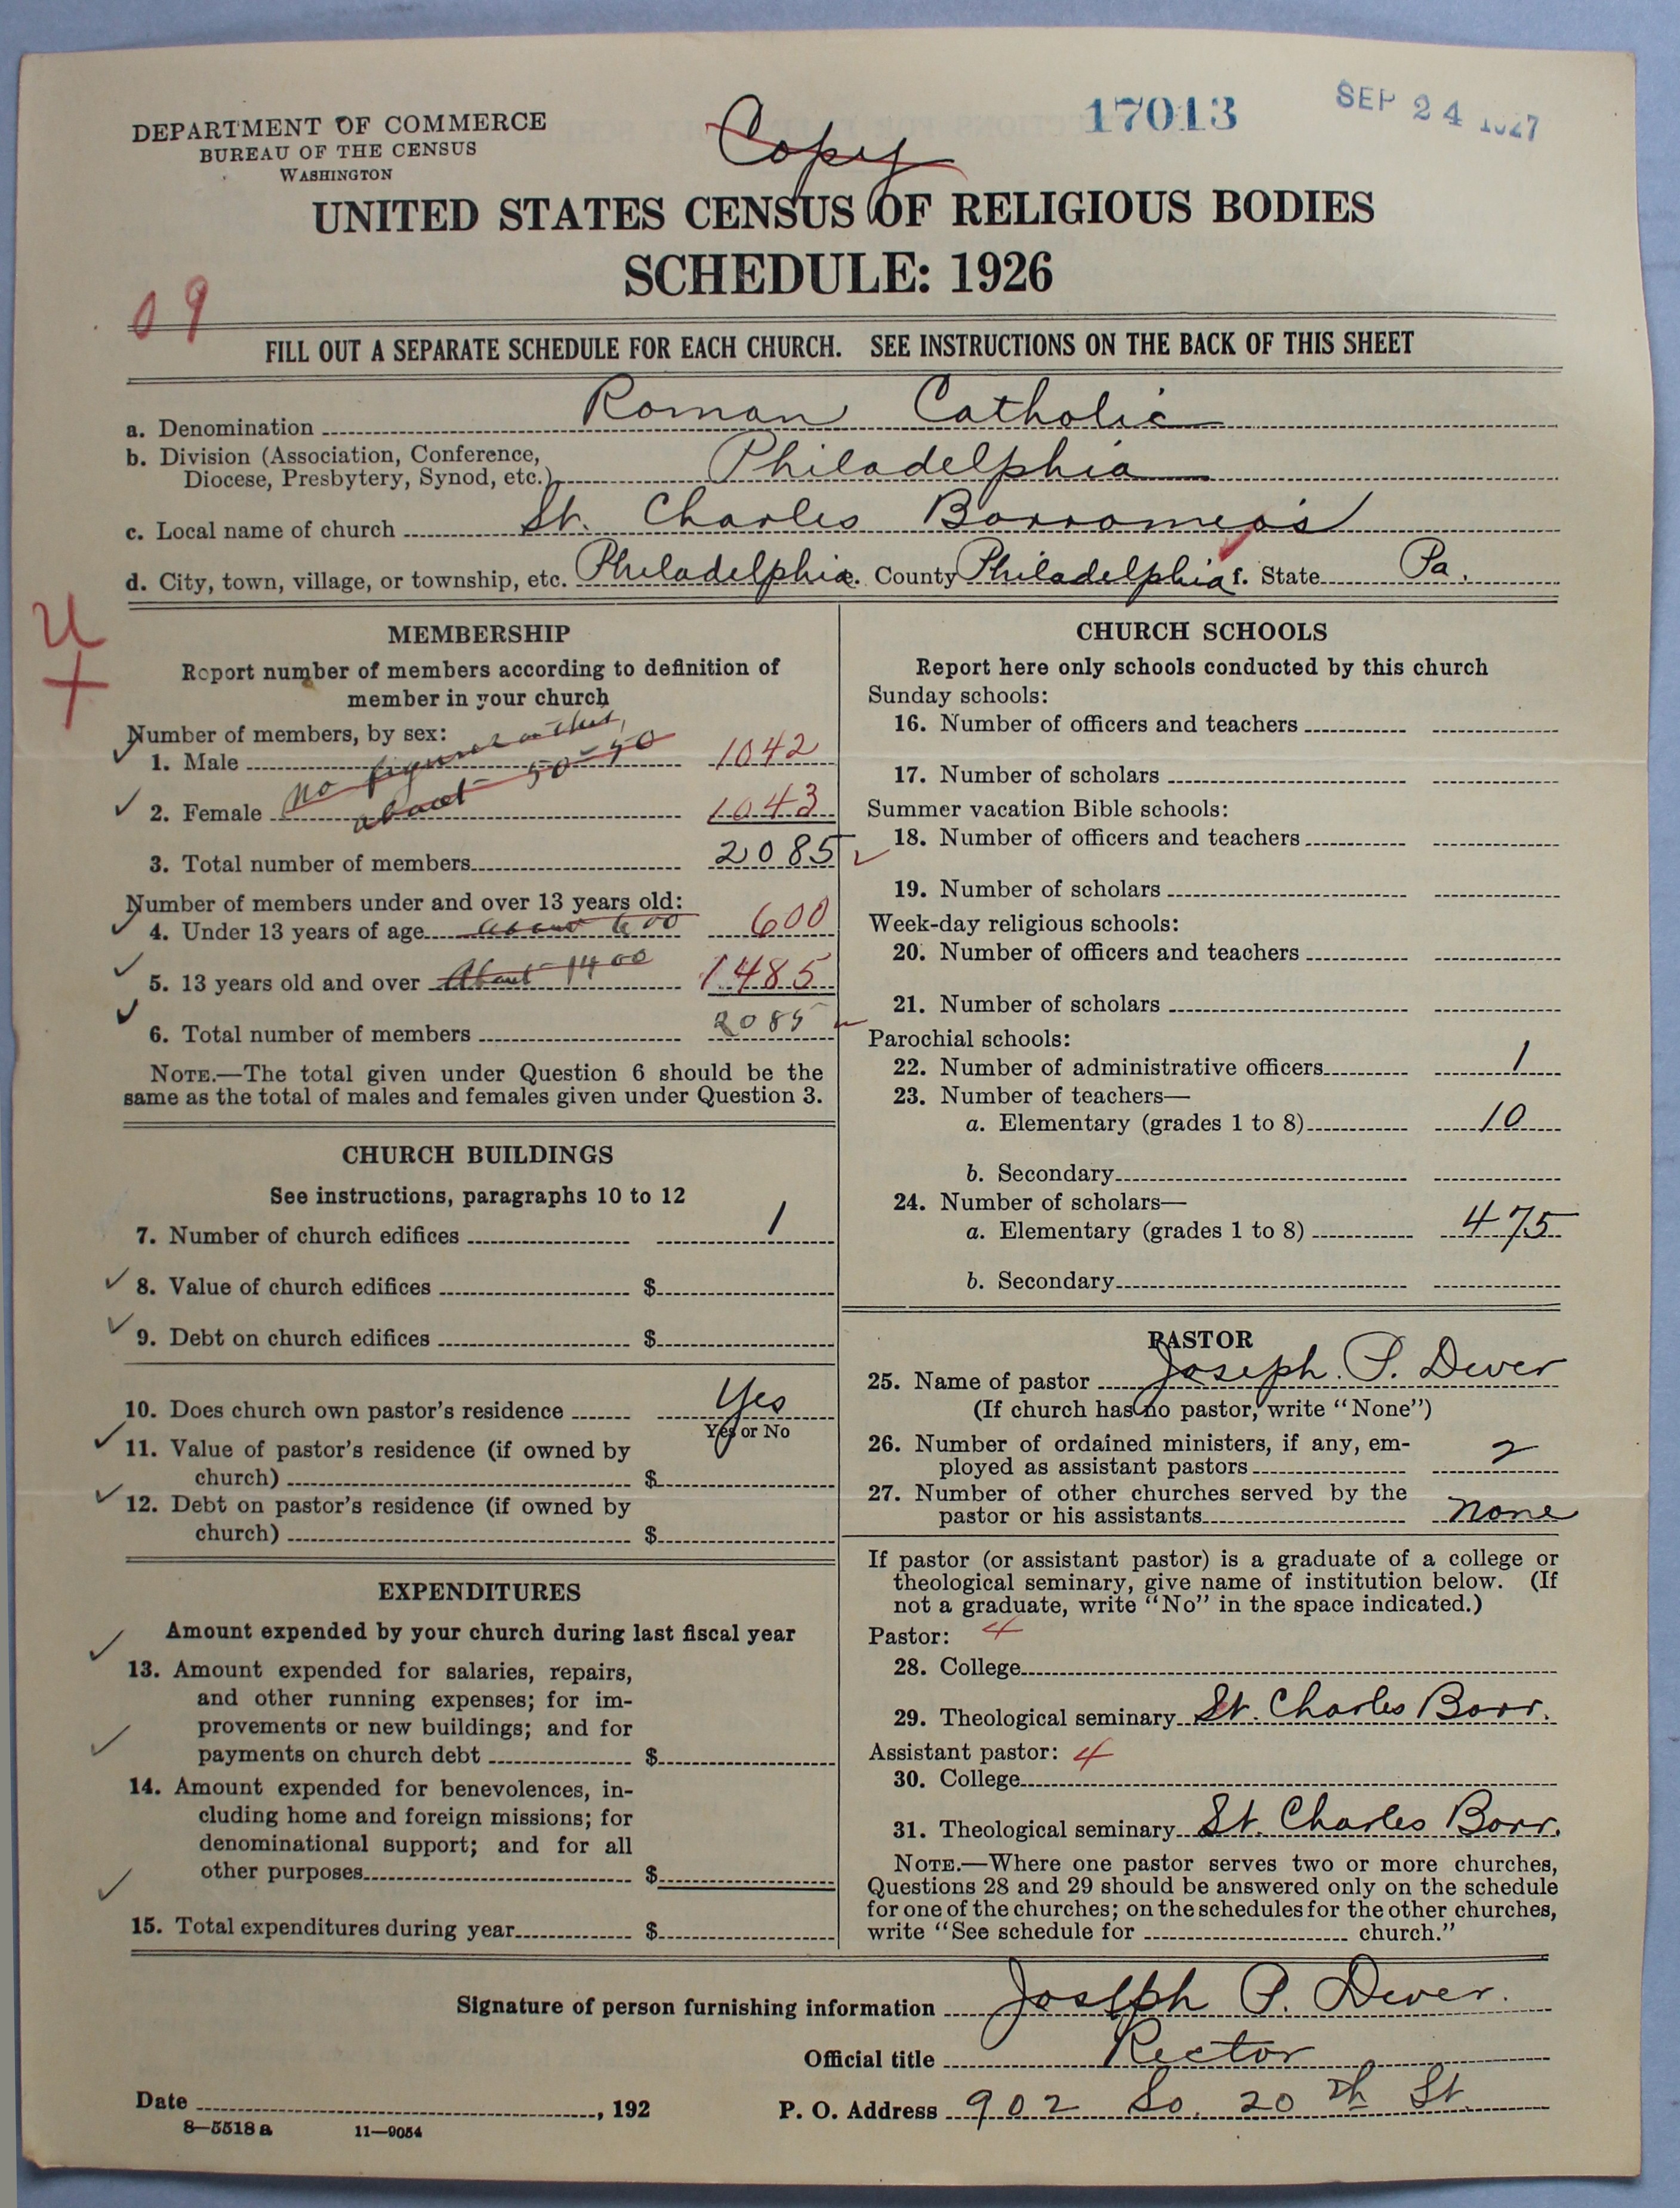 DEPARTMENT OF COMMERCE
BUREAU OF THE CENSUS
WASHINGTON
Copy
17013
SEP 24 1927
UNITED STATES CENSUS OF RELIGIOUS BODIES
SCHEDULE: 1926
09
FILL OUT A SEPARATE SCHEDULE FOR EACH CHURCH. SEE INSTRUCTIONS ON THE BACK OF THIS SHEET
a. Denomination Roman Catholic
b. Division (Association, Conference,
Diocese, Presbytery, Synod, etc.) Philadelphia
c. Local name of church St. Charles Borromeo's
d. City, town, village, or township, etc. Philadelphia e. County Philadelphia f. State Pa.
U
+
MEMBERSHIP
Report number of members according to definition of
member in your church
Number of members, by sex:
1. Male no figures 1042
2. Female about 50-50 1043
3. Total number of members 2085
Number of members under and over 13 years old:
4. Under 13 years of age About 600 600
5. 13 years old and over About 1400 1485
6. Total number of members 2085
NOTE.—The total given under Question 6 should be the
same as the total of males and females given under Question 3.
CHURCH BUILDINGS
See instructions, paragraphs 10 to 12
7. Number of church edifices 1
8. Value of church edifices $
9. Debt on church edifices $
10. Does church own pastor's residence Yes
Yes or No
11. Value of pastor's residence (if owned by
church) $
12. Debt on pastor's residence (if owned by
church) $
EXPENDITURES
Amount expended by your church during last fiscal year
13. Amount expended for salaries, repairs,
and other running expenses; for im-
provements or new buildings; and for
payments on church debt $
14. Amount expended for benevolences, in-
cluding home and foreign missions; for
denominational support; and for all
other purposes $
15. Total expenditures during year $
CHURCH SCHOOLS
Report here only schools conducted by this church
Sunday schools:
16. Number of officers and teachers
17. Number of scholars
Summer vacation Bible schools:
18. Number of officers and teachers
19. Number of scholars
Week-day religious schools:
20. Number of officers and teachers
21. Number of scholars
Parochial schools:
22. Number of administrative officers 1
23. Number of teachers—
a. Elementary (grades 1 to 8) 10
b. Secondary
24. Number of scholars—
a. Elementary (grades 1 to 8) 475
b. Secondary
PASTOR
25. Name of pastor Joseph. P. Dever
(If church has no pastor, write "None")
26. Number of ordained ministers, if any, em-
ployed as assistant pastors 2
27. Number of other churches served by the
pastor or his assistants none
If pastor (or assistant pastor) is a graduate of a college or
theological seminary, give name of institution below. (If
not a graduate, write "No" in the space indicated.)
Pastor: 4
28. College
29. Theological seminary St. Charles Borr.
Assistant pastor: 4
30. College
31. Theological seminary St. Charles Borr.
NOTE.—Where one pastor serves two or more churches,
Questions 28 and 29 should be answered only on the schedule
for one of the churches; on the schedules for the other churches,
write "See schedule for church."
Signature of person furnishing information Joseph P. Dever.
Official title Rector
Date , 192
P. O. Address 902 So. 20th St.
8—5518 a 11—9054